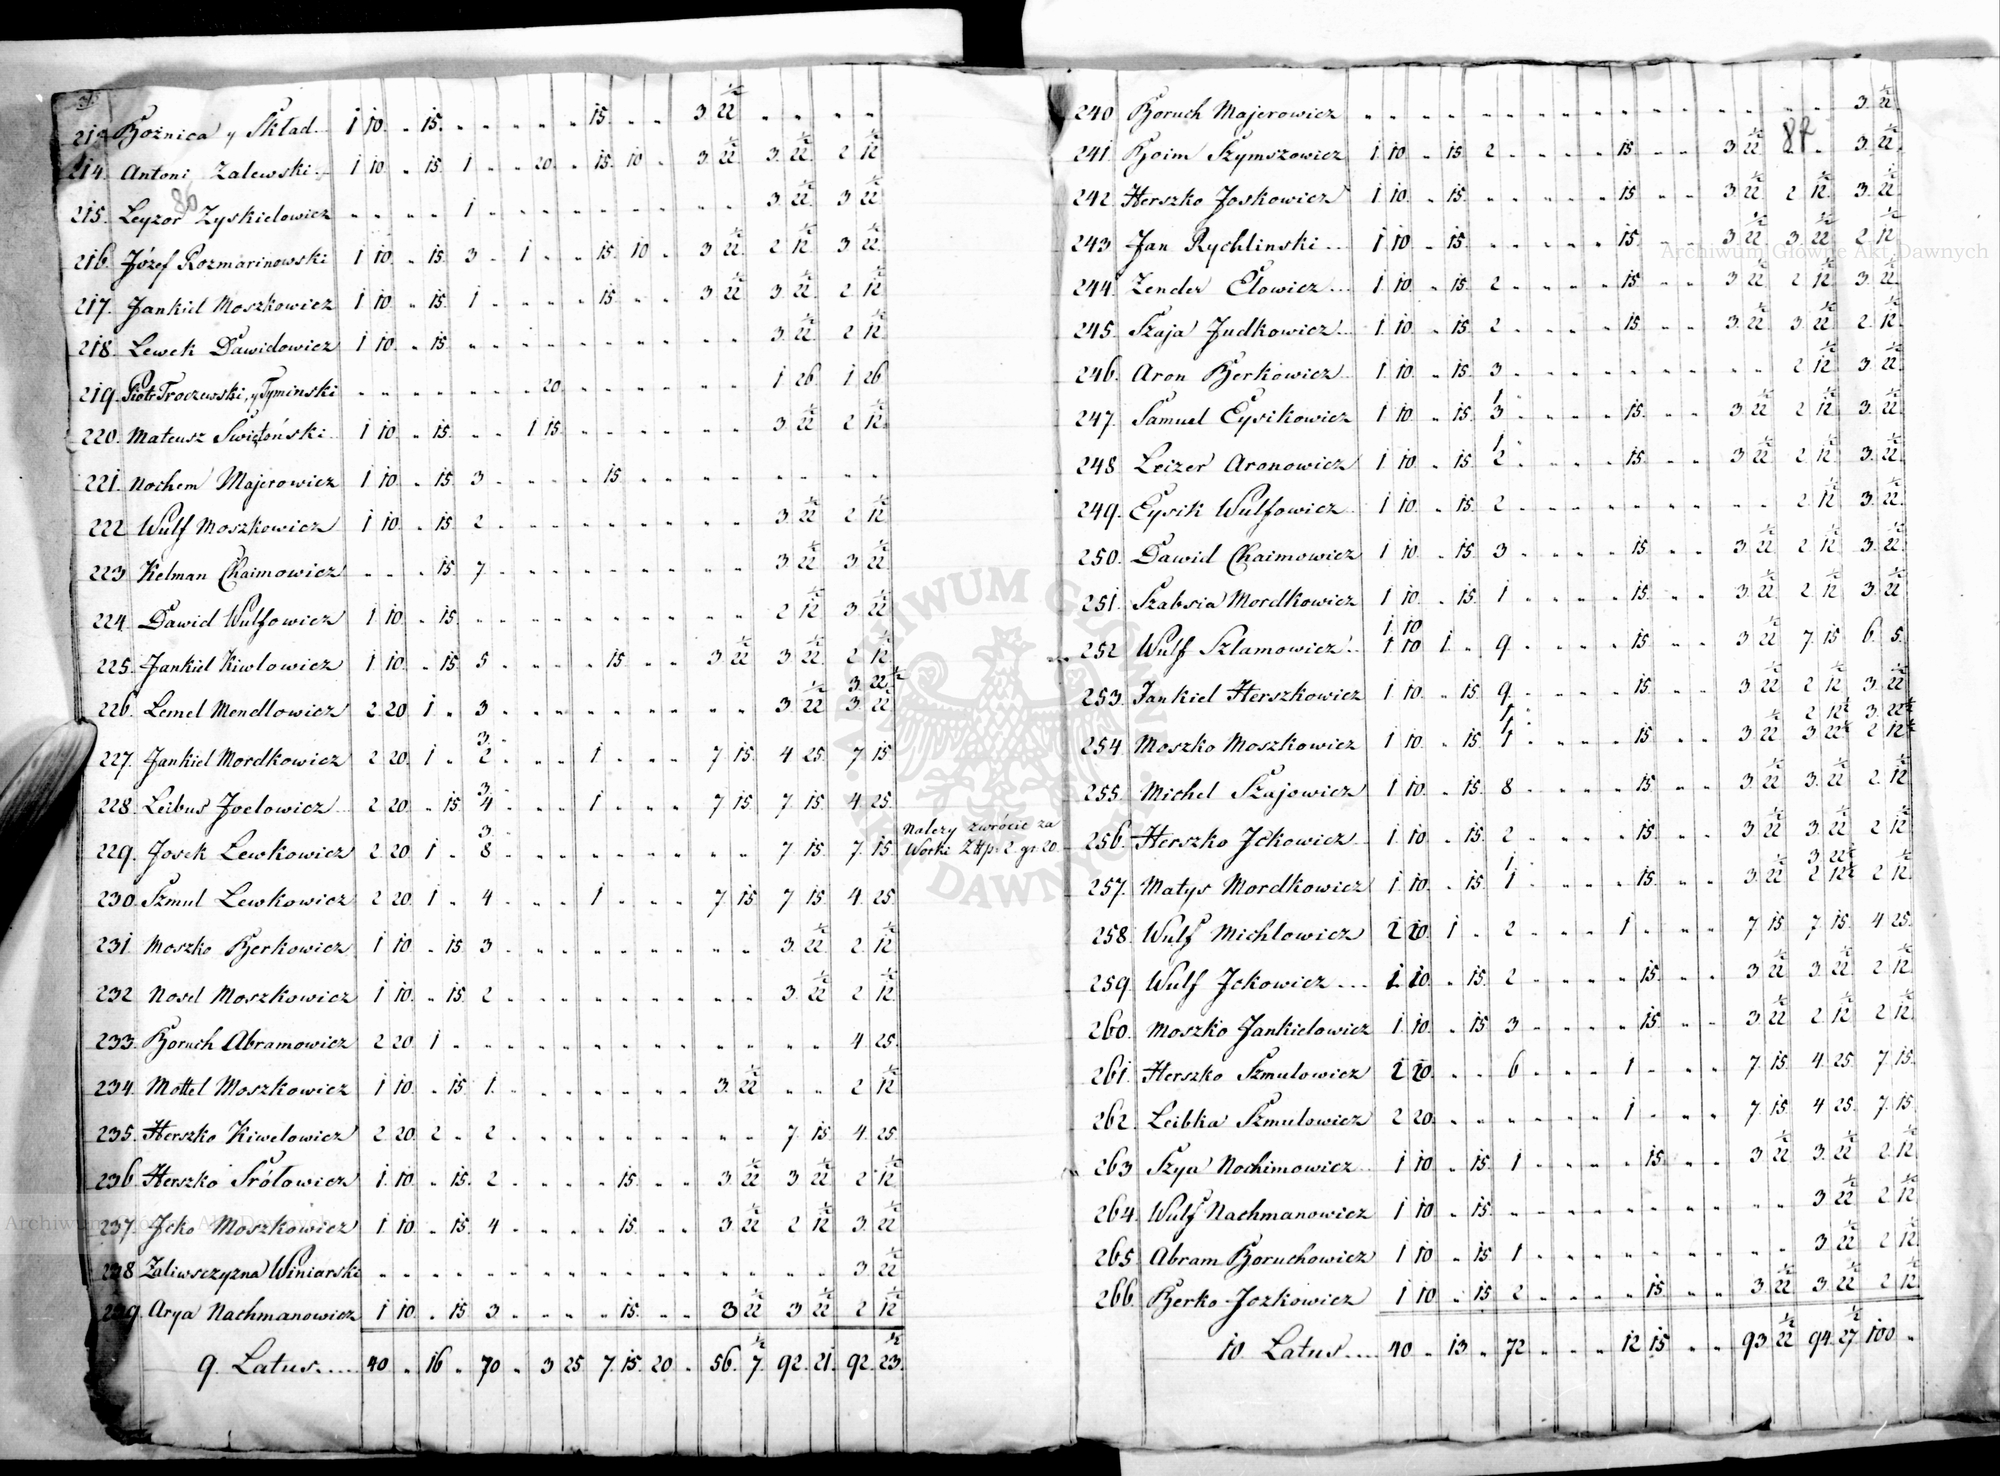 213 Bożnica y Skład 1 10 „ 15 „ „ „ „ „ 15 „ „ 3 22½ „ „ „ „
214. Antoni Zalewski 1 10 „ 15 1 „ „ 20 „ 15 10 „ 3 22½ 3 22½ 2 12½
86
215. Leyzor Zyskielowicz „ „ „ „ 1 „ „ „ „ „ „ „ „ „ 3 22½ 3 22½
216. Józef Rozmarinowski 1 10 „ 15 3 „ 1 „ „ 15 10 „ 3 22½ 2 12½ 3 22½
217. Jankiel Moszkowicz 1 10 „ 15 1 „ „ „ „ 15 „ „ 3 22½ 3 22½ 2 12½
218. Lewek Dawidowicz 1 10 „ 15 „ „ „ „ „ „ „ „ „ „ 3 22½ 2 12½
219. Piotr Troczewski, y Tyminski „ „ „ „ „ „ „ 20 „ „ „ „ „ „ 1 26 1 26
220. Mateusz Swiętoński 1 10 „ 15 „ „ 1 15 „ „ „ „ „ „ 3 22½ 2 12½
221. Nochem Majerowicz 1 10 „ 15 3 „ „ „ „ 15 „ „ „ „ „ „ „ „
222 Wulf Moszkowicz 1 10 „ 15 2 „ „ „ „ „ „ „ „ „ 3 22½ 2 12½
223 Kelman Chaimowicz „ „ „ 15 7 „ „ „ „ „ „ „ „ „ 3 22½ 3 22½
224. Dawid Wulfowicz 1 10 „ 15 „ „ „ „ „ „ „ „ „ „ 2 12½ 3 22½
225. Jankiel Kiwlowicz 1 10 „ 15 5 „ „ „ „ 15 „ „ 3 22½ 3 22½ 2 12½
3 22½
226. Lemel Mendlowicz 2 20 1 „ 3 „ „ „ „ „ „ „ „ „ 3 22½ 3 22
3
227. Jankiel Mordkowicz 2 20 1 „ 2 „ „ „ 1 „ „ „ 7 15 4 25 7 15
3
228. Leibus Joelowicz 2 20 „ 15 4 „ „ „ 1 „ „ „ 7 15 7 15 4 25
3
229. Josek Lewkowicz 2 20 1 „ 8 „ „ „ „ „ „ „ „ „ 7 15 7 15
Należy zwrócić za
Worki Złłp: 2 gr 20
230 Szmul Lewkowicz 2 20 1 „ 4 „ „ „ 1 „ „ „ 7 15 7 15 4 25
231 Moszko Berkowicz 1 10 „ 15 3 „ „ „ „ „ „ „ „ „ 3 22½ 2 12½
232 Nosel Moszkowicz 1 10 „ 15 2 „ „ „ „ „ „ „ „ „ 3 22½ 2 12½
233 Boruch Abramowicz 2 20 1 „ „ „ „ „ „ „ „ „ „ „ „ „ 4 25
234 Mottel Moszkowicz 1 10 „ 15 1 „ „ „ „ „ „ „ 3 22½ „ „ 2 12½
235. Herszko Kiwelowicz 2 20 2 „ 2 „ „ „ „ „ „ „ „ „ 7 15 4 25
236 Herszko Srółowicz 1 10 „ 15 2 „ „ „ „ 15 „ „ 3 22½ 3 22½ 2 12½
237. Jcko Moszkowicz 1 10 „ 15 4 „ „ „ „ 15 „ „ 3 22½ 2 12½ 3 22½
238 Zaliwsczyzna Winiarski „ „ „ „ „ „ „ „ „ „ „ „ „ „ „ „ 3 22½
239. Arya Nachmanowicz 1 10 „ 15 3 „ „ „ „ 15 „ „ 3 22½ 3 22½ 2 12½
9. Latus.... 40 „ 16 „ 70 „ 3 25 7 15 20 „ 56 7½ 92 21 92 23½
240 Boruch Majerowicz „ „ „ „ „ „ „ „ „ „ „ „ „ „ „ „ 3 22½
87
241. Boim Szymszowicz 1 10 „ 15 2 „ „ „ „ 15 „ „ 3 22½ „ „ 3 22½
242 Herszko Joskowicz 1 10 „ 15 „ „ „ „ „ 15 „ „ 3 22½ 2 12½ 3 22½
243 Jan Rychlinski 1 10 „ 15 „ „ „ „ „ 15 „ „ 3 22½ 3 22½ 2 12½
244 Zender Elowicz 1 10 „ 15 2 „ „ „ „ 15 „ „ 3 22½ 2 12½ 3 22½
245 Szaja Judkowicz 1 10 „ 15 2 „ „ „ „ 15 „ „ 3 22½ 3 22½ 2 12½
246 Aron Berkowicz 1 10 „ 15 3 „ „ „ „ „ „ „ „ „ 2 12½ 3 22½
1
247. Samuel Eysikowicz 1 10 „ 15 3 „ „ „ „ 15 „ „ 3 22½ 2 12½ 3 22½
1
248 Leizer Aronowicz 1 10 „ 15 2 „ „ „ „ 15 „ „ 3 22½ 2 12½ 3 22½
249. Eysik Wulfowicz 1 10 „ 15 2 „ „ „ „ „ „ „ „ „ 2 12½ 3 22½
250. Dawid Chaimowicz 1 10 „ 15 3 „ „ „ „ 15 „ „ 3 22½ 2 12½ 3 22½
251. Szabsia Mordkowicz 1 10 „ 15 1 „ „ „ „ 15 „ „ 3 22½ 2 12½ 3 22½
1 10
252 Wulf Szlamowicz 1 10 1 „ 9 „ „ „ „ 15 „ „ 3 22½ 7 15 6 5
253. Jankiel Herszkowicz 1 10 „ 15 9 „ „ „ „ 15 „ „ 3 22½ 2 12½ 3 22½
1 2 12½ 3 22½
254 Moszko Moszkowicz 1 10 „ 15 1 „ „ „ „ 15 „ „ 3 22½ 3 22½ 2 12½
255. Michel Szajowicz 1 10 „ 15 8 „ „ „ „ 15 „ „ 3 22½ 3 22½ 2 12½
256. Herszko Jckowicz 1 10 „ 15 2 „ „ „ „ 15 „ „ 3 22½ 3 22½ 2 12½
1 3 22½
257. Matys Mordkowicz 1 10 „ 15 1 „ „ „ „ 15 „ „ 3 22½ 2 12½ 2 12½
258. Wulf Michlowicz 2 20 1 „ 2 „ „ „ 1 „ „ „ 7 15 7 15 4 25
259. Wulf Jckowicz 1 10 „ 15 2 „ „ „ „ 15 „ „ 3 22½ 3 22½ 2 12½
260. Moszko Jankielowicz 1 10 „ 15 3 „ „ „ „ 15 „ „ 3 22½ 2 12½ 2 12½
261. Herszko Szmulowicz 2 20 „ „ 6 „ „ „ 1 „ „ „ 7 15 4 25 7 15
262. Leibka Szmulowicz 2 20 „ „ „ „ „ „ 1 „ „ „ 7 15 4 25 7 15
263 Szya Nochimowicz 1 10 „ 15 1 „ „ „ „ 15 „ „ 3 22½ 3 22½ 2 12½
264. Wulf Nachmanowicz 1 10 „ 15 „ „ „ „ „ „ „ „ „ „ 3 22½ 2 12½
265 Abram Boruchowicz 1 10 „ 15 1 „ „ „ „ „ „ „ „ „ 3 22½ 2 12½
266 Berko Jozkowicz 1 10 „ 15 2 „ „ „ „ 15 „ „ 3 22½ 3 22½ 2 12½
10 Latus.... 40 „ 13 „ 72 „ „ „ 12 15 „ „ 93 22½ 94 27½ 100 „
Archiwum Główne Akt Dawnych
Archiwum Główne Akt Dawnych
ARCHIWUM GŁÓWNE AKT DAWNYCH